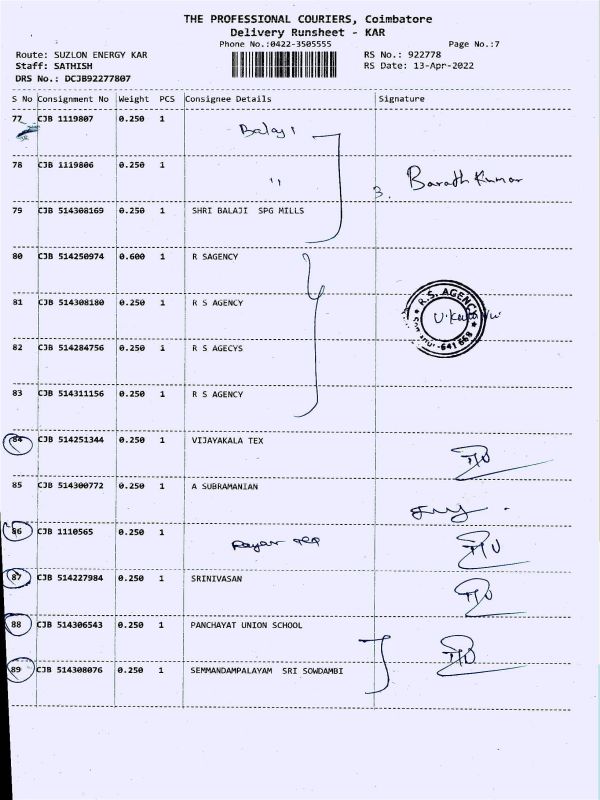 THE PROFESSIONAL COURIERS, Coimbatore
Delivery Runsheet - KAR
Phone No.:0422-3505555 Page No.:7
Route: SUZLON ENERGY KAR RS No.: 922778
Staff: SATHISH RS Date: 13-Apr-2022
DRS No.: DCJB92277807
S No Consignment No Weight PCS Consignee Details Signature
77 CJB 1119807 0.250 1
Balaji
78 CJB 1119806 0.250 1
" 3. Barath Kumar
79 CJB 514308169 0.250 1 SHRI BALAJI SPG MILLS
80 CJB 514250974 0.600 1 R SAGENCY
81 CJB 514308180 0.250 1 R S AGENCY
R.S. AGENCY
641 668
82 CJB 514284756 0.250 1 R S AGECYS
83 CJB 514311156 0.250 1 R S AGENCY
84 CJB 514251344 0.250 1 VIJAYAKALA TEX
85 CJB 514300772 0.250 1 A SUBRAMANIAN
86 CJB 1110565 0.250 1
87 CJB 514227984 0.250 1 SRINIVASAN
88 CJB 514306543 0.250 1 PANCHAYAT UNION SCHOOL
89 CJB 514308076 0.250 1 SEMMANDAMPALAYAM SRI SOWDAMBI